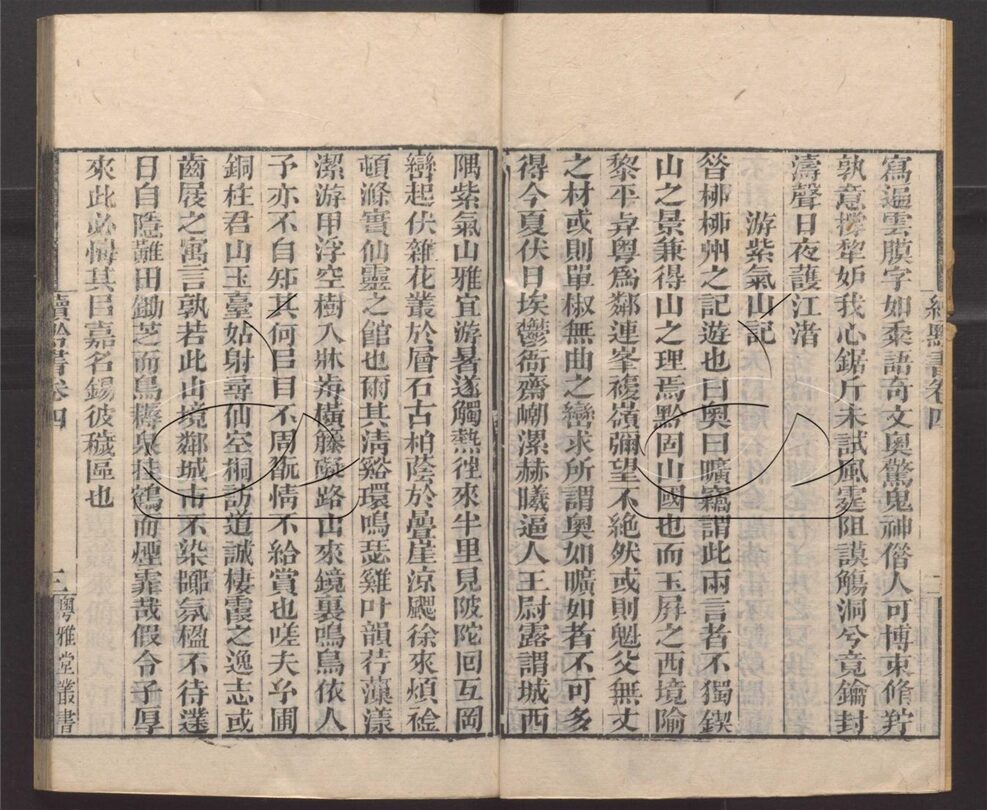 寫遍雲膜字如黍語奇文奧驚鬼神偕人可博束脩羜
孰意撐犂妒我心鋸斤未試風霆阻謨觴洞兮竟鑰封
濤聲日夜護江渚
游紫氣山記
昝柳柳州之記遊也曰奧曰曠竊謂此兩言者不獨鍥
山之景兼得山之理焉黔固山國也而玉屏之西境隃
黎平弄粵爲鄰連峯複嶺彌望不絶然或則魁父無丈
之材或則單椒無曲之巒求所謂奧如曠如者不可多
得今夏伏日埃鬱衙齋嘲漯赫曦逼人王尉露謂城西
續黔書卷四
二
隅紫氣山雅宜游暑遂觸熱徃來半里見陂陀回互岡
巒起伏雜花叢於層石古柏蔭於疊崖涼飈徐來煩襘
頓滌實仙靈之館也爾其清谿環鳴瑟雞叶韻荇藻漾
潔游甲浮空樹入牀海橫藤礙路出來鏡裏鳴鳥依人
予亦不自知其何㠯目不周翫情不給賞也嗟夫糸圃
銅柱君山玉臺姑射尋仙空桐訪道誠棲霞之逸志或
齒屐之寓言孰若此山境鄰城市不染鄽氛楹不待邌
日自隱難田鋤芝而鳥耨泉挂鶴而煙霏哉假令子厚
來此必悔其㠯嘉名錫彼穢區也
續黔書卷四
三
粵雅堂叢書